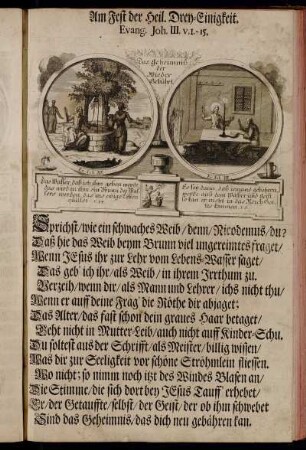 Am Fest der Heil. Drey-Einigkeit.
Evang. Joh. III. v. 1.-15.
Das Geheimnus
der
Wieder
Gebührt.
Das Waßer, daß ich ihm geben werde
das wird in ihm ein Brunn des Waſ
Es sey dann, daß iemand gebohren
werde aus dem Waßer und Geist
Sprichst / wie ein schwaches Weib / denn / Nicodemus / du?
Daß hie das Weib beym Brunn viel ungereimtes fraget /
Wenn JEsus ihr zur Lehr vom Lebens-Wasser saget /
Das geb' ich ihr / als Weib / in ihrem Irrthum zu.
Verzeih / wenn dir / als Mann und Lehrer / ichs nicht thu /
Wenn er auff deine Frag die Röthe dir abjaget:
Das Alter / das fast schon dein graues Haar betaget /
Geht nicht in Mutter-Leib / auch nicht auff Kinder-Schu.
Du soltest aus der Schrifft / als Meister / billig wissen /
Was dir zur Seeligkeit vor schöne Ströhmlein fliessen.
Wo nicht; so nimm noch itzt des Windes Blasen an
Die Stimme / die sich dort bey JEsus Tauff erhebet /
Er / der Getauffte / selbst / der Geist / der ob ihm schwebet
Sind das Geheimnis / das dich neu gebähren kan.